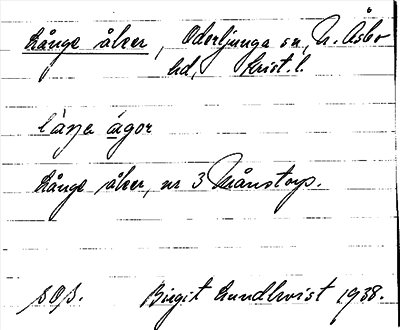 Långe åker, Oderljunga sn, N. Åsbo
hd, Krist. l.
låŋa ågor
Långe åker, nr 3 Månstorp.
SOS. Birgit Lundkvist 1938.